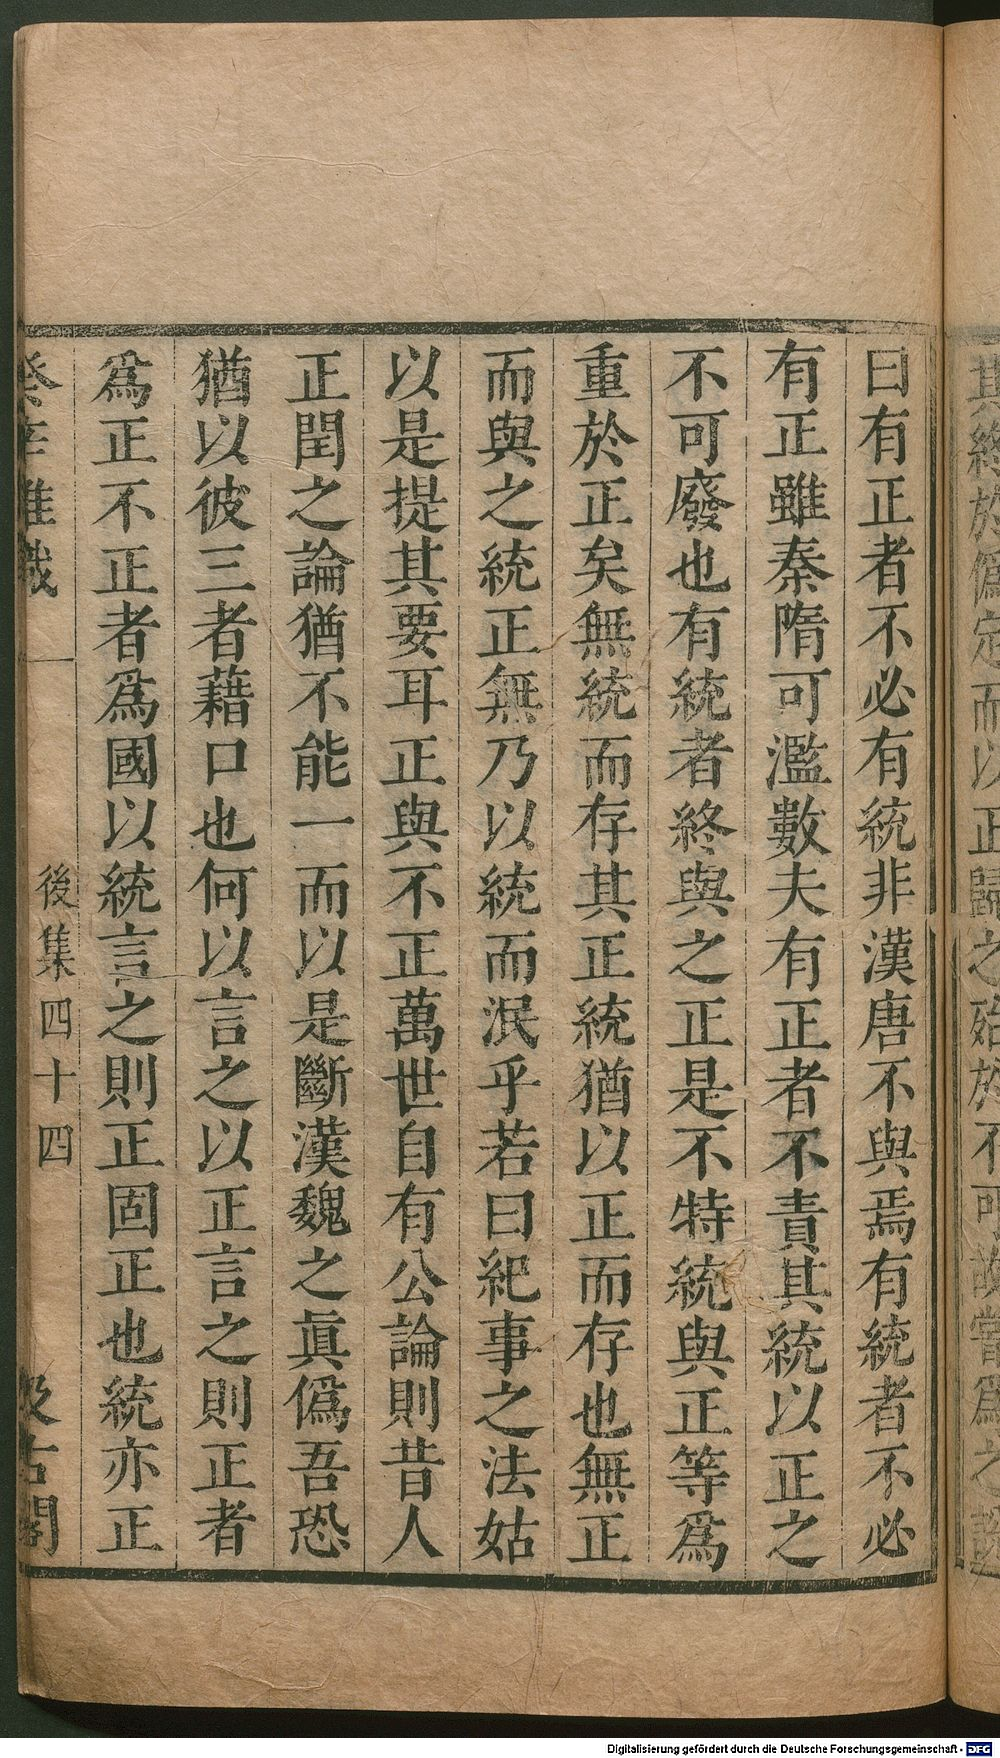 其終於僞定而以正歸之殆於不可故嘗爲之說
曰有正者不必有統非漢唐不與焉有統者不必
有正雖秦隋可濫數夫有正者不責其統以正之
不可廢也有統者終與之正是不特統與正等爲
重於正矣無統而存其正統猶以正而存也無正
而與之統正無乃以統而泯乎若曰紀事之法姑
以是提其要耳正與不正萬世自有公論則昔人
正閏之論猶不能一而以是斷漢魏之眞僞吾恐
猶以彼三者藉口也何以言之以正言之則正者
爲正不正者爲國以統言之則正固正也統亦正
癸辛雜識
後集四十四
汲古閣
Digitalisierung gefördert durch die Deutsche Forschungsgemeinschaft - DFG